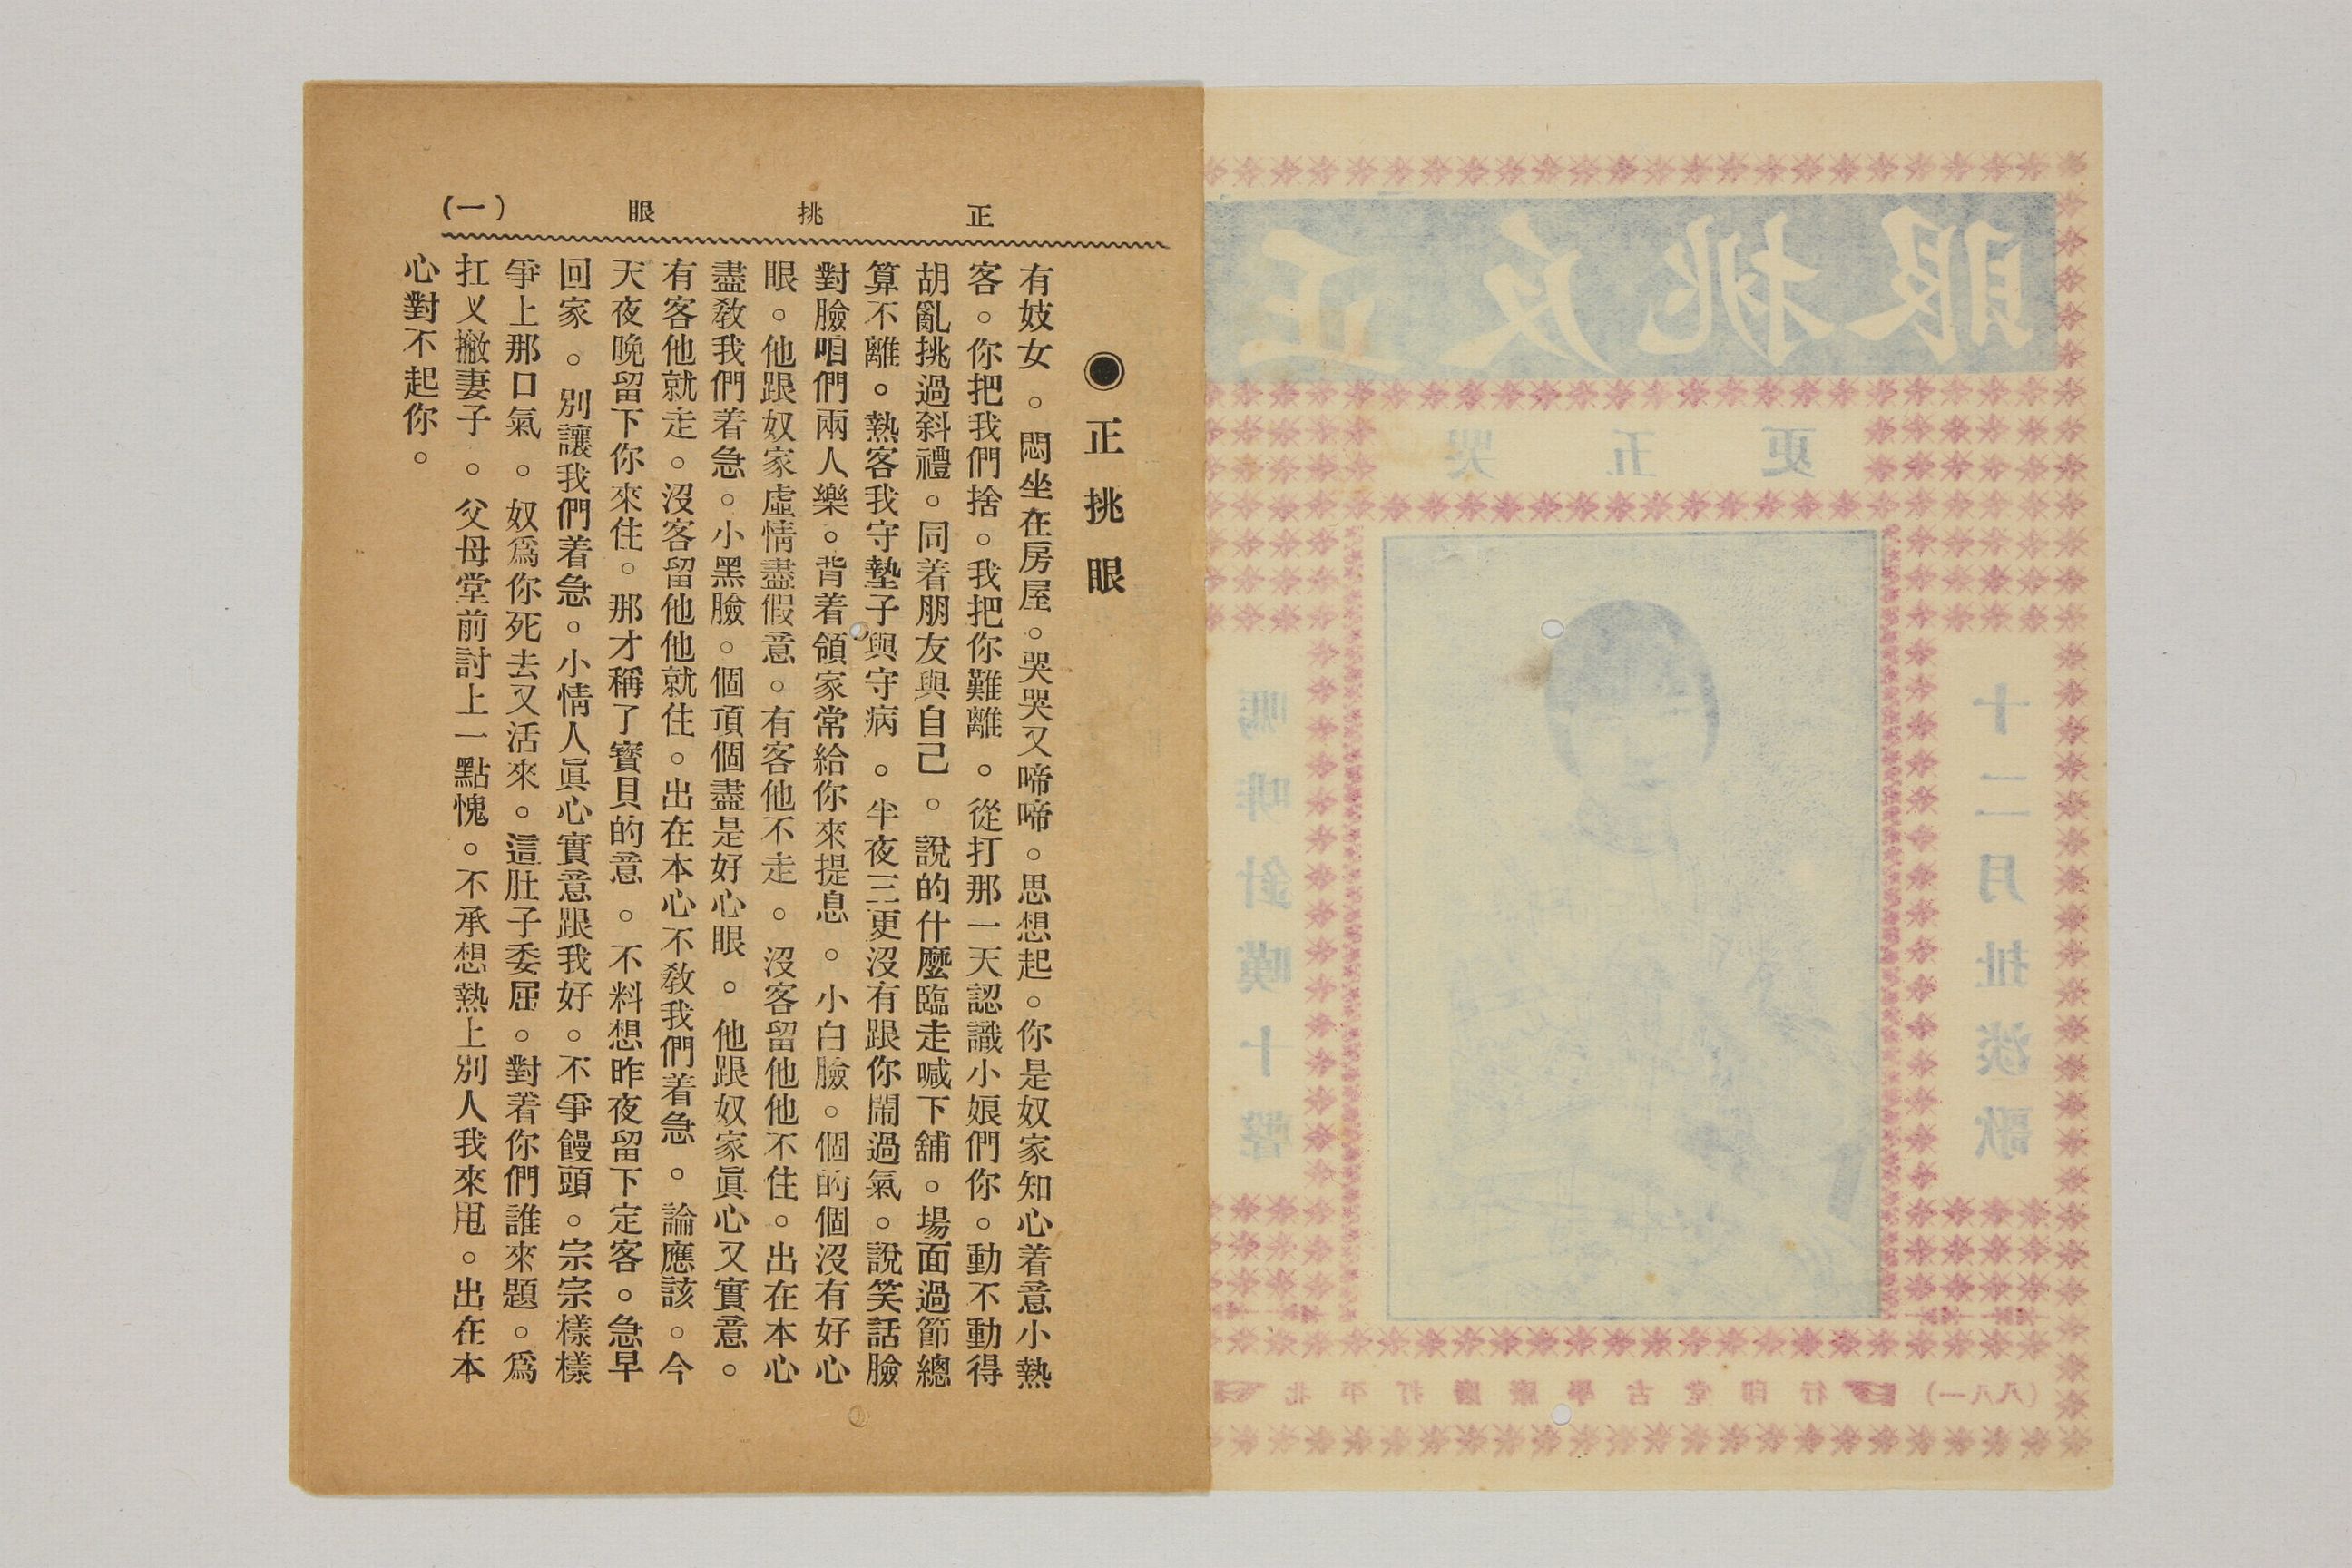 正反挑眼
哭五更
十二月扯淡歌
嗎啡針嘆十聲
北平打磨廠學古堂印行 (一八八)
正挑眼 (一)
◉正挑眼
有妓女。悶坐在房屋。哭哭又啼啼。思想起。你是奴家知心着意小熱
客。你把我們捨。我把你難離。從打那一天認識小娘們你。動不動得
胡亂挑過斜禮。同着朋友與自己。說的什麼臨走喊下舖。場面過節總
算不離。熱客我守墊子與守病。半夜三更沒有跟你鬧過氣。說笑話臉
對臉咱們兩人樂。背着領家常給你來提息。小白臉。個的個沒有好心
眼。他跟奴家虛情盡假意。有客他不走。沒客留他他不住。出在本心
盡敎我們着急。小黑臉。個頂個盡是好心眼。他跟奴家眞心又實意。
有客他就走。沒客留他他就住。出在本心不敎我們着急。論應該。今
天夜晚留下你來住。那才稱了寶貝的意。不料想昨夜留下定客。急早
回家。別讓我們着急。小情人眞心實意跟我好。不爭饅頭。宗宗樣樣
爭上那口氣。奴爲你死去又活來。這肚子委屈。對着你們誰來題。爲
扛义撇妻子。父母堂前討上一點愧。不承想熱上別人我來甩。出在本
心對不起你。